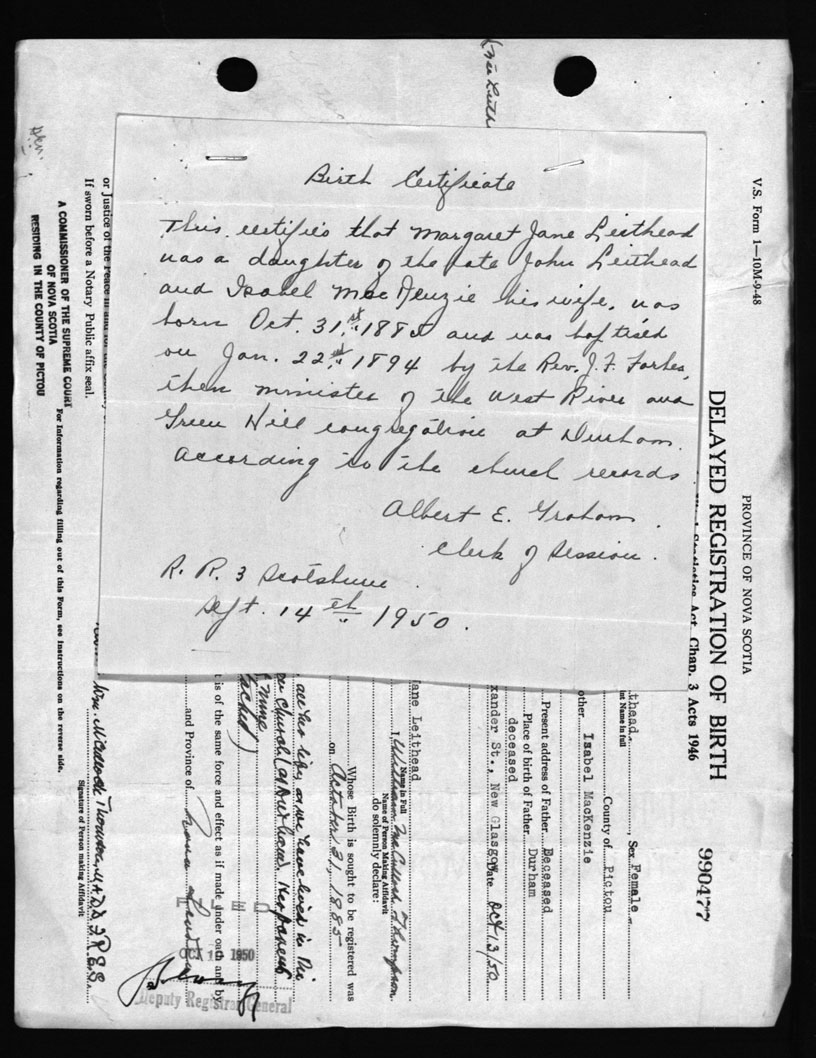 Birth Certificate
This certifies that Margaret Jane Leithead
was a daughter of the late John Leithead
and Isabel MacKenzie his wife, was
born Oct. 31st 1885 and was baptised
on Jan. 22nd 1894 by the Rev. J. F. Forbes,
then minister of the West River and
Green Hill congregation at Durham.
According to the church records
Albert E. Graham.
Clerk of Session.
R. R. 3 Scotsburn.
Sept. 14th 1950.
V.S. Form 1—10M-9-48
PROVINCE OF NOVA SCOTIA
DELAYED REGISTRATION OF BIRTH
990477
Statistics Act, Chap. 3 Acts 1946
thead.
nt Name in full
Sex Female
County of Pictou
other Isabel MacKenzie
Present address of Father Deceased
Place of birth of Father Durham
deceased
xander St., New Glasgow Date Oct 13/50
Jane Leithead
I,
Thompson
Name in Full
Name of Person Making Affidavit
do solemnly declare:
Whose Birth is sought to be registered was
on October 31, 1885
all her life, as we have lived in the
church
mine
tached)
t is of the same force and effect as if made under oath and by
and Province of Nova Scotia
FILED
OCT 1950
Deputy Registrar General
Wm. McCulloch Thompson
Signature of Person making Affidavit
For information regarding filling out of this Form, see instructions on the reverse side.
or Justice of the Peace in and for the County
If sworn before a Notary Public affix seal.
A COMMISSIONER OF THE SUPREME COURT
OF NOVA SCOTIA
RESIDING IN THE COUNTY OF PICTOU